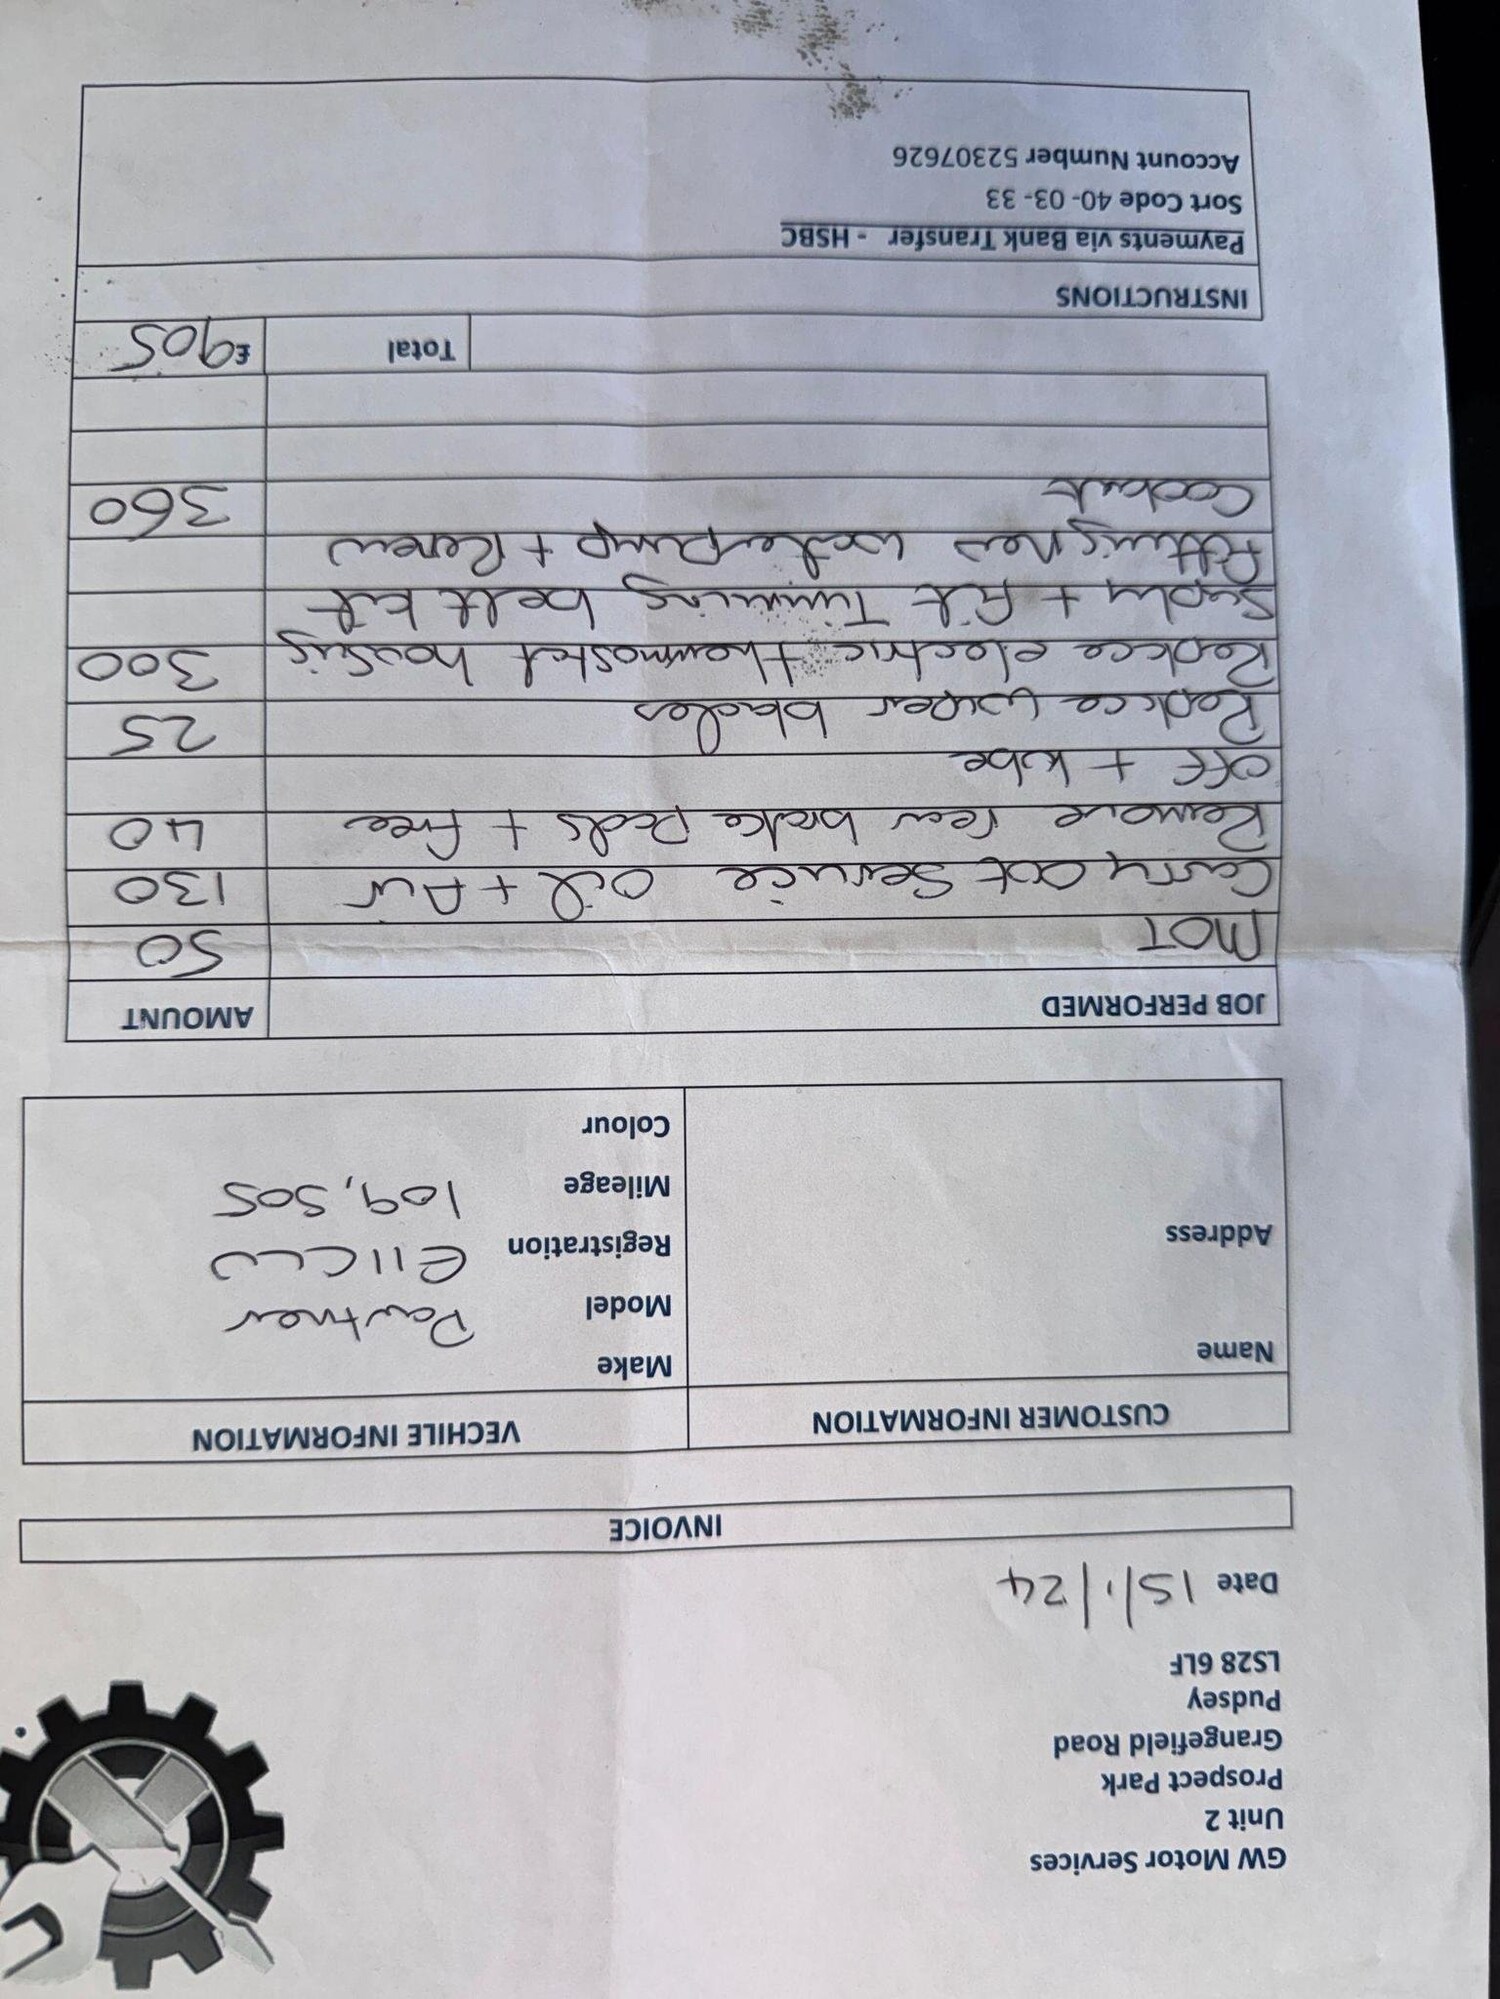 GW Motor Services
Unit 2
Prospect Park
Grangefield Road
Pudsey
LS28 6LF
Date 15/1/24
INVOICE
CUSTOMER INFORMATION VECHILE INFORMATION
Name
Address
Make
Model Partner
Registration E11CLW
Mileage 109,505
Colour
JOB PERFORMED AMOUNT
MOT 50
Carry out Service Oil + Air 130
Remove rear brake Pads + free 40
off + lube
Replace wiper blades 25
Replace electric thermostat housing 300
Supply + fit Timming belt kit
Fitting new waterpump + Renew
Coolant 360
Total £905
INSTRUCTIONS
Payments via Bank Transfer - HSBC
Sort Code 40- 03- 33
Account Number 52307626